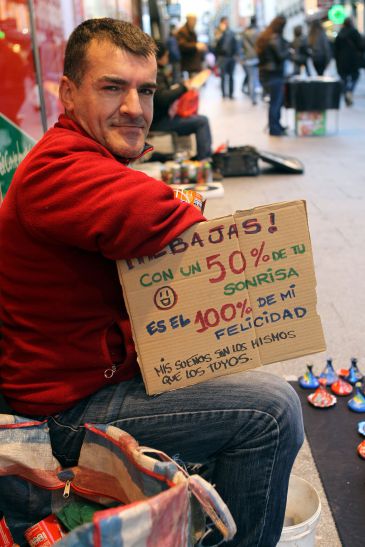 ¡REBAJAS!
CON UN 50% DE TU
SONRISA
ES EL 100% DE MI
FELICIDAD
MIS SUEÑOS SON LOS MISMOS
QUE LOS TUYOS.